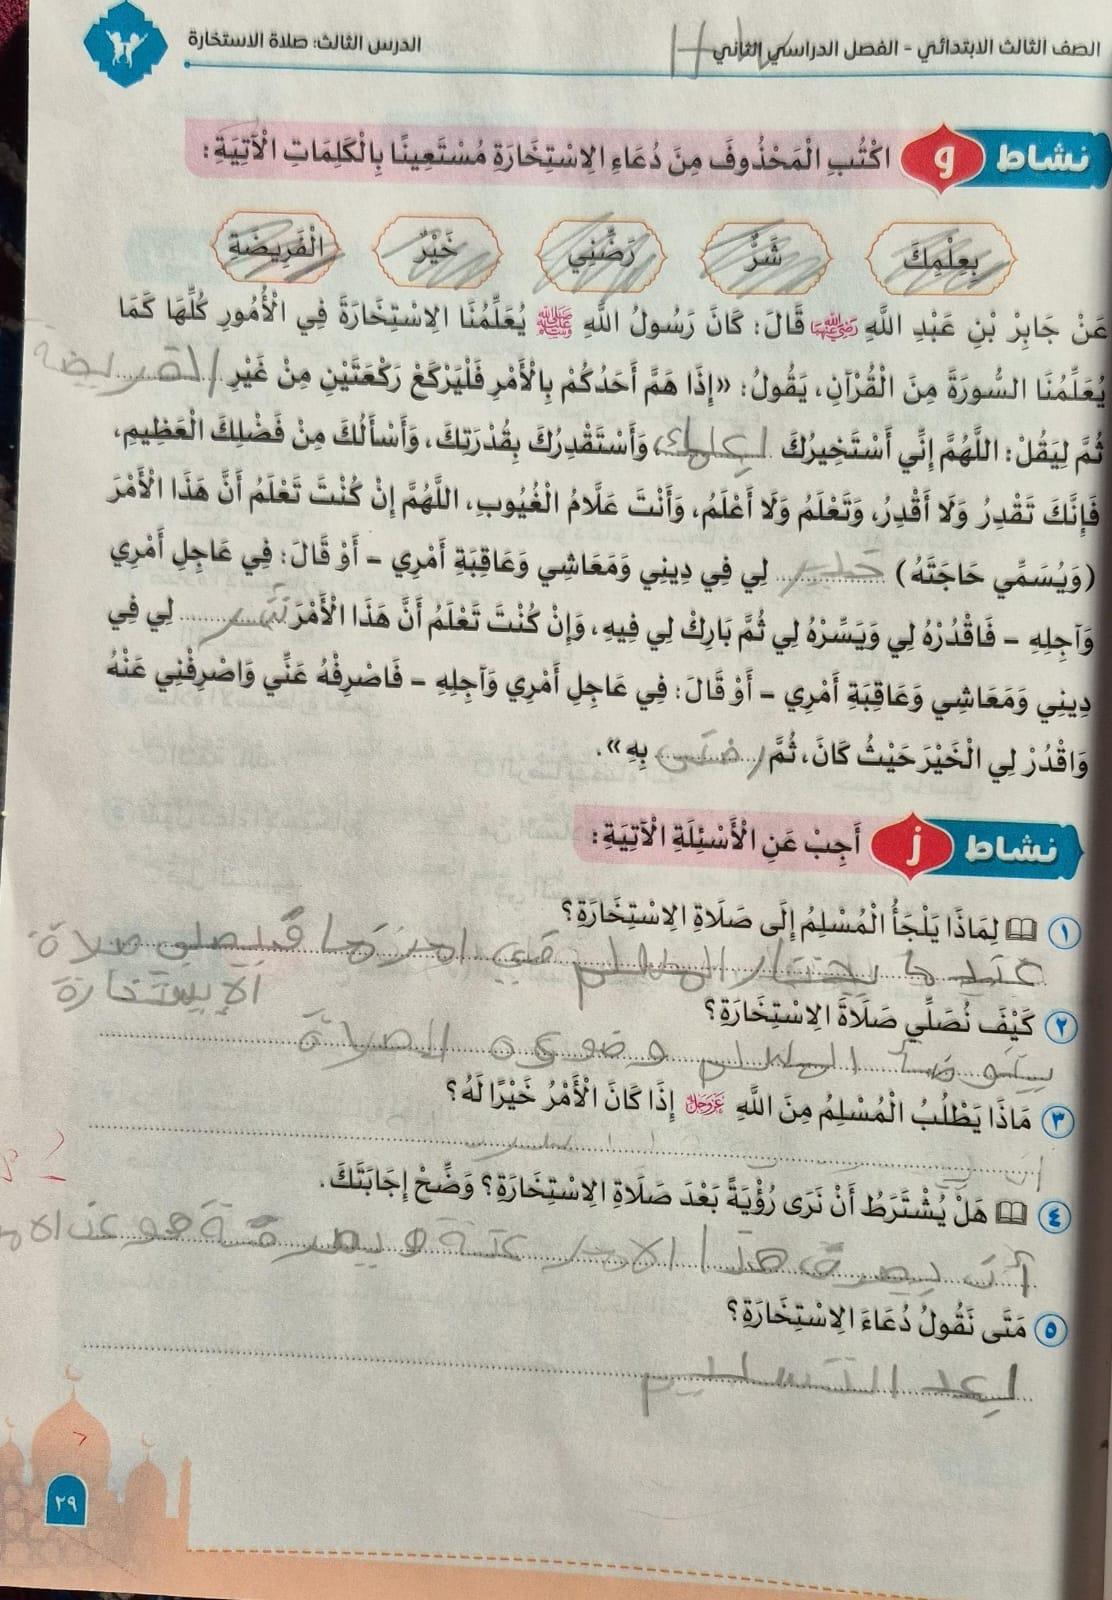 الصف الثالث الابتدائي - الفصل الدراسي الثاني
الدرس الثالث: صلاة الاستخارة
نشاط و اكْتُبِ الْمَحْذُوفَ مِنَ دُعَاءِ الِاسْتِخَارَةِ مُسْتَعِينًا بِالْكَلِمَاتِ الْآتِيَةِ:
بِعِلْمِكَ شَرٌّ رَضِّنِي خَيْرٌ الْفَرِيضَةِ
عَنْ جَابِرِ بْنِ عَبْدِ اللَّهِ رضي الله عنهما قَالَ: كَانَ رَسُولُ اللَّهِ ﷺ يُعَلِّمُنَا الِاسْتِخَارَةَ فِي الْأُمُورِ كُلِّهَا كَمَا
يُعَلِّمُنَا السُّورَةَ مِنَ الْقُرْآنِ، يَقُولُ: «إِذَا هَمَّ أَحَدُكُمْ بِالْأَمْرِ فَلْيَرْكَعْ رَكْعَتَيْنِ مِنْ غَيْرِ الفريضة
ثُمَّ لِيَقُلْ: اللَّهُمَّ إِنِّي أَسْتَخِيرُكَ بعلمك، وَأَسْتَقْدِرُكَ بِقُدْرَتِكَ، وَأَسْأَلُكَ مِنْ فَضْلِكَ الْعَظِيمِ،
فَإِنَّكَ تَقْدِرُ وَلَا أَقْدِرُ، وَتَعْلَمُ وَلَا أَعْلَمُ، وَأَنْتَ عَلَّامُ الْغُيُوبِ، اللَّهُمَّ إِنْ كُنْتَ تَعْلَمُ أَنَّ هَذَا الْأَمْرَ
(وَيُسَمِّي حَاجَتَهُ) خير لِي فِي دِينِي وَمَعَاشِي وَعَاقِبَةِ أَمْرِي - أَوْ قَالَ: فِي عَاجِلِ أَمْرِي
وَآجِلِهِ - فَاقْدُرْهُ لِي وَيَسِّرْهُ لِي ثُمَّ بَارِكْ لِي فِيهِ، وَإِنْ كُنْتَ تَعْلَمُ أَنَّ هَذَا الْأَمْرَ شر لِي فِي
دِينِي وَمَعَاشِي وَعَاقِبَةِ أَمْرِي - أَوْ قَالَ: فِي عَاجِلِ أَمْرِي وَآجِلِهِ - فَاصْرِفْهُ عَنِّي وَاصْرِفْنِي عَنْهُ
وَاقْدُرْ لِي الْخَيْرَ حَيْثُ كَانَ، ثُمَّ رضني بِهِ».
نشاط ز أَجِبْ عَنِ الْأَسْئِلَةِ الْآتِيَةِ:
١ لِمَاذَا يَلْجَأُ الْمُسْلِمُ إِلَى صَلَاةِ الِاسْتِخَارَةِ؟
عندما يحتار المسلم في امر ما فيصلي صلاة
الإستخارة
٢ كَيْفَ نُصَلِّي صَلَاةَ الِاسْتِخَارَةِ؟
يتوضأ المسلم وضوءه الصلاة
٣ مَاذَا يَطْلُبُ الْمُسْلِمُ مِنَ اللَّهِ عز وجل إِذَا كَانَ الْأَمْرُ خَيْرًا لَهُ؟
٤ هَلْ يُشْتَرَطُ أَنْ نَرَى رُؤْيَةً بَعْدَ صَلَاةِ الِاسْتِخَارَةِ؟ وَضِّحْ إِجَابَتَكَ.
أن يصرف هذا الامر عنه ويصرفه هو عن الامر
٥ مَتَى نَقُولُ دُعَاءَ الِاسْتِخَارَةِ؟
بعد التسليم
٢٩